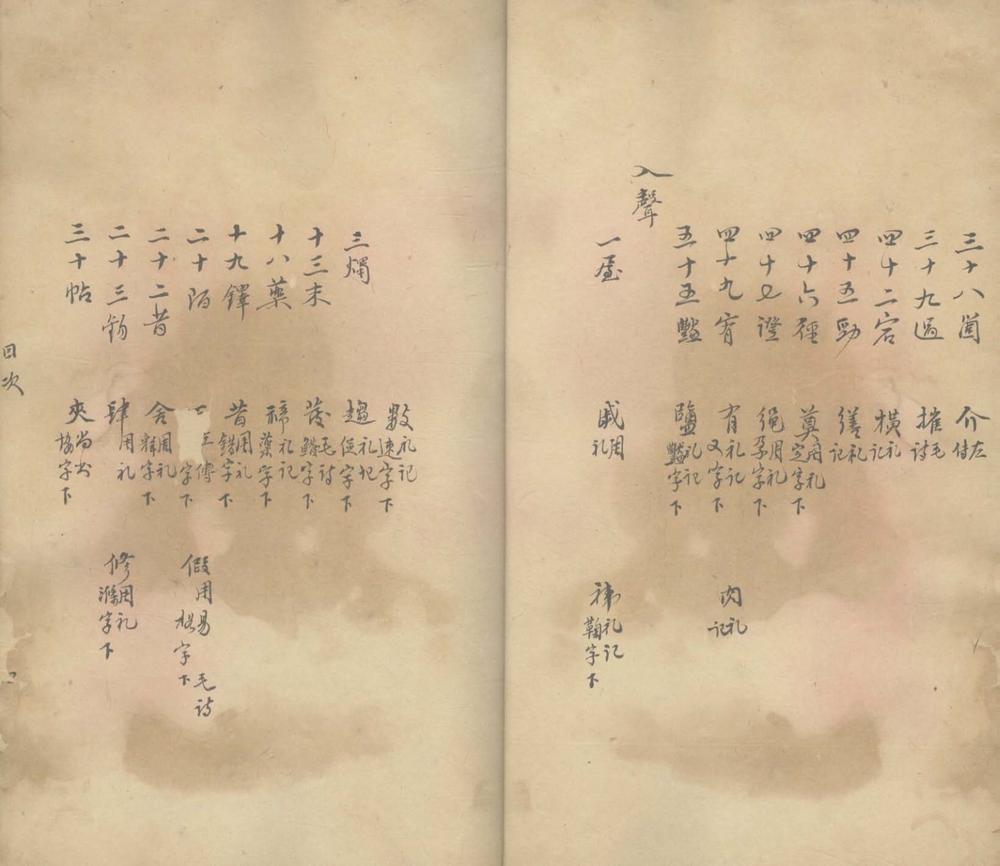 三十八箇 介左傳
三十九過 摧毛詩
四十二宕 横礼記
四十五勁 繕礼記
四十六徑 奠周礼定字下
四十七證 绳周礼孕字下
四十九宥 有礼記又字下 肉礼記
五十五豔 鹽礼記豔字下
入聲
一屋 戚周礼 袆礼記鞠字下
數礼记速字下
三燭 趨礼記促字下
十三末 發毛詩鱍字下
十八藥 禘礼記藥字下
十九鐸 昔周礼錯字下
二十陌 字下 假周易格字下 毛诗
二十二昔 舍周礼釋字下
二十三錫 肆周礼 修周礼滌字下
三十帖 夾尚书協字下
目次